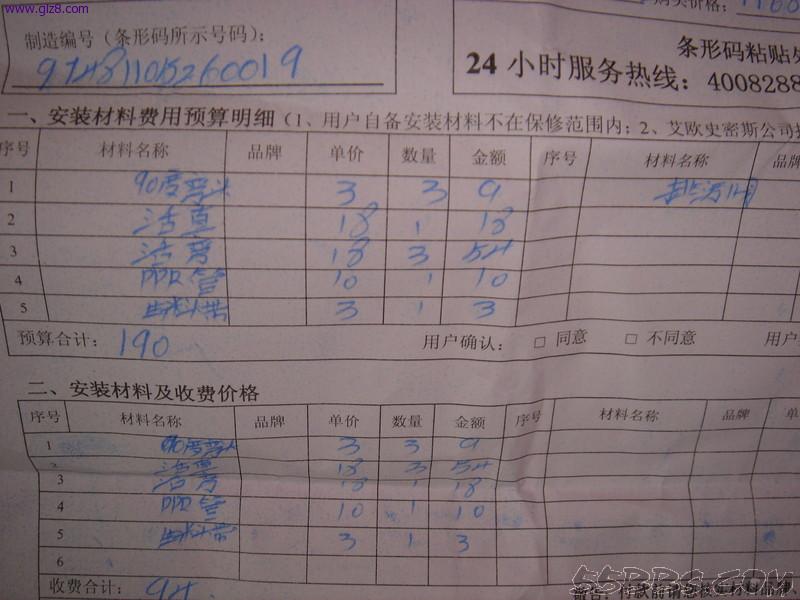 www.glz8.com
购买价格：
制造编号（条形码所示号码）：
97481101B260019
条形码粘贴处
24 小时服务热线：4008288
一、安装材料费用预算明细（1、用户自备安装材料不在保修范围内；2、艾欧史密斯公司
序号 材料名称 品牌 单价 数量 金额 序号 材料名称 品牌
1 90度弯头 3 3 9 排污阀
2 活直 18 1 18
3 活弯 18 3 54
4 PPR管 10 1 10
5 生料带 3 1 3
预算合计： 190 用户确认： □ 同意 □ 不同意 用户
二、安装材料及收费价格
序号 材料名称 品牌 单价 数量 金额 序号 材料名称 品牌 单
1 90度弯头 3 3 9
2 活直 18 3 54
3 活弯 18 1 18
4 PPR管 10 1 10
5 生料带 3 1 3
6
收费合计： 94
敬告：付款前请您核实材料品牌、
55BBS.COM